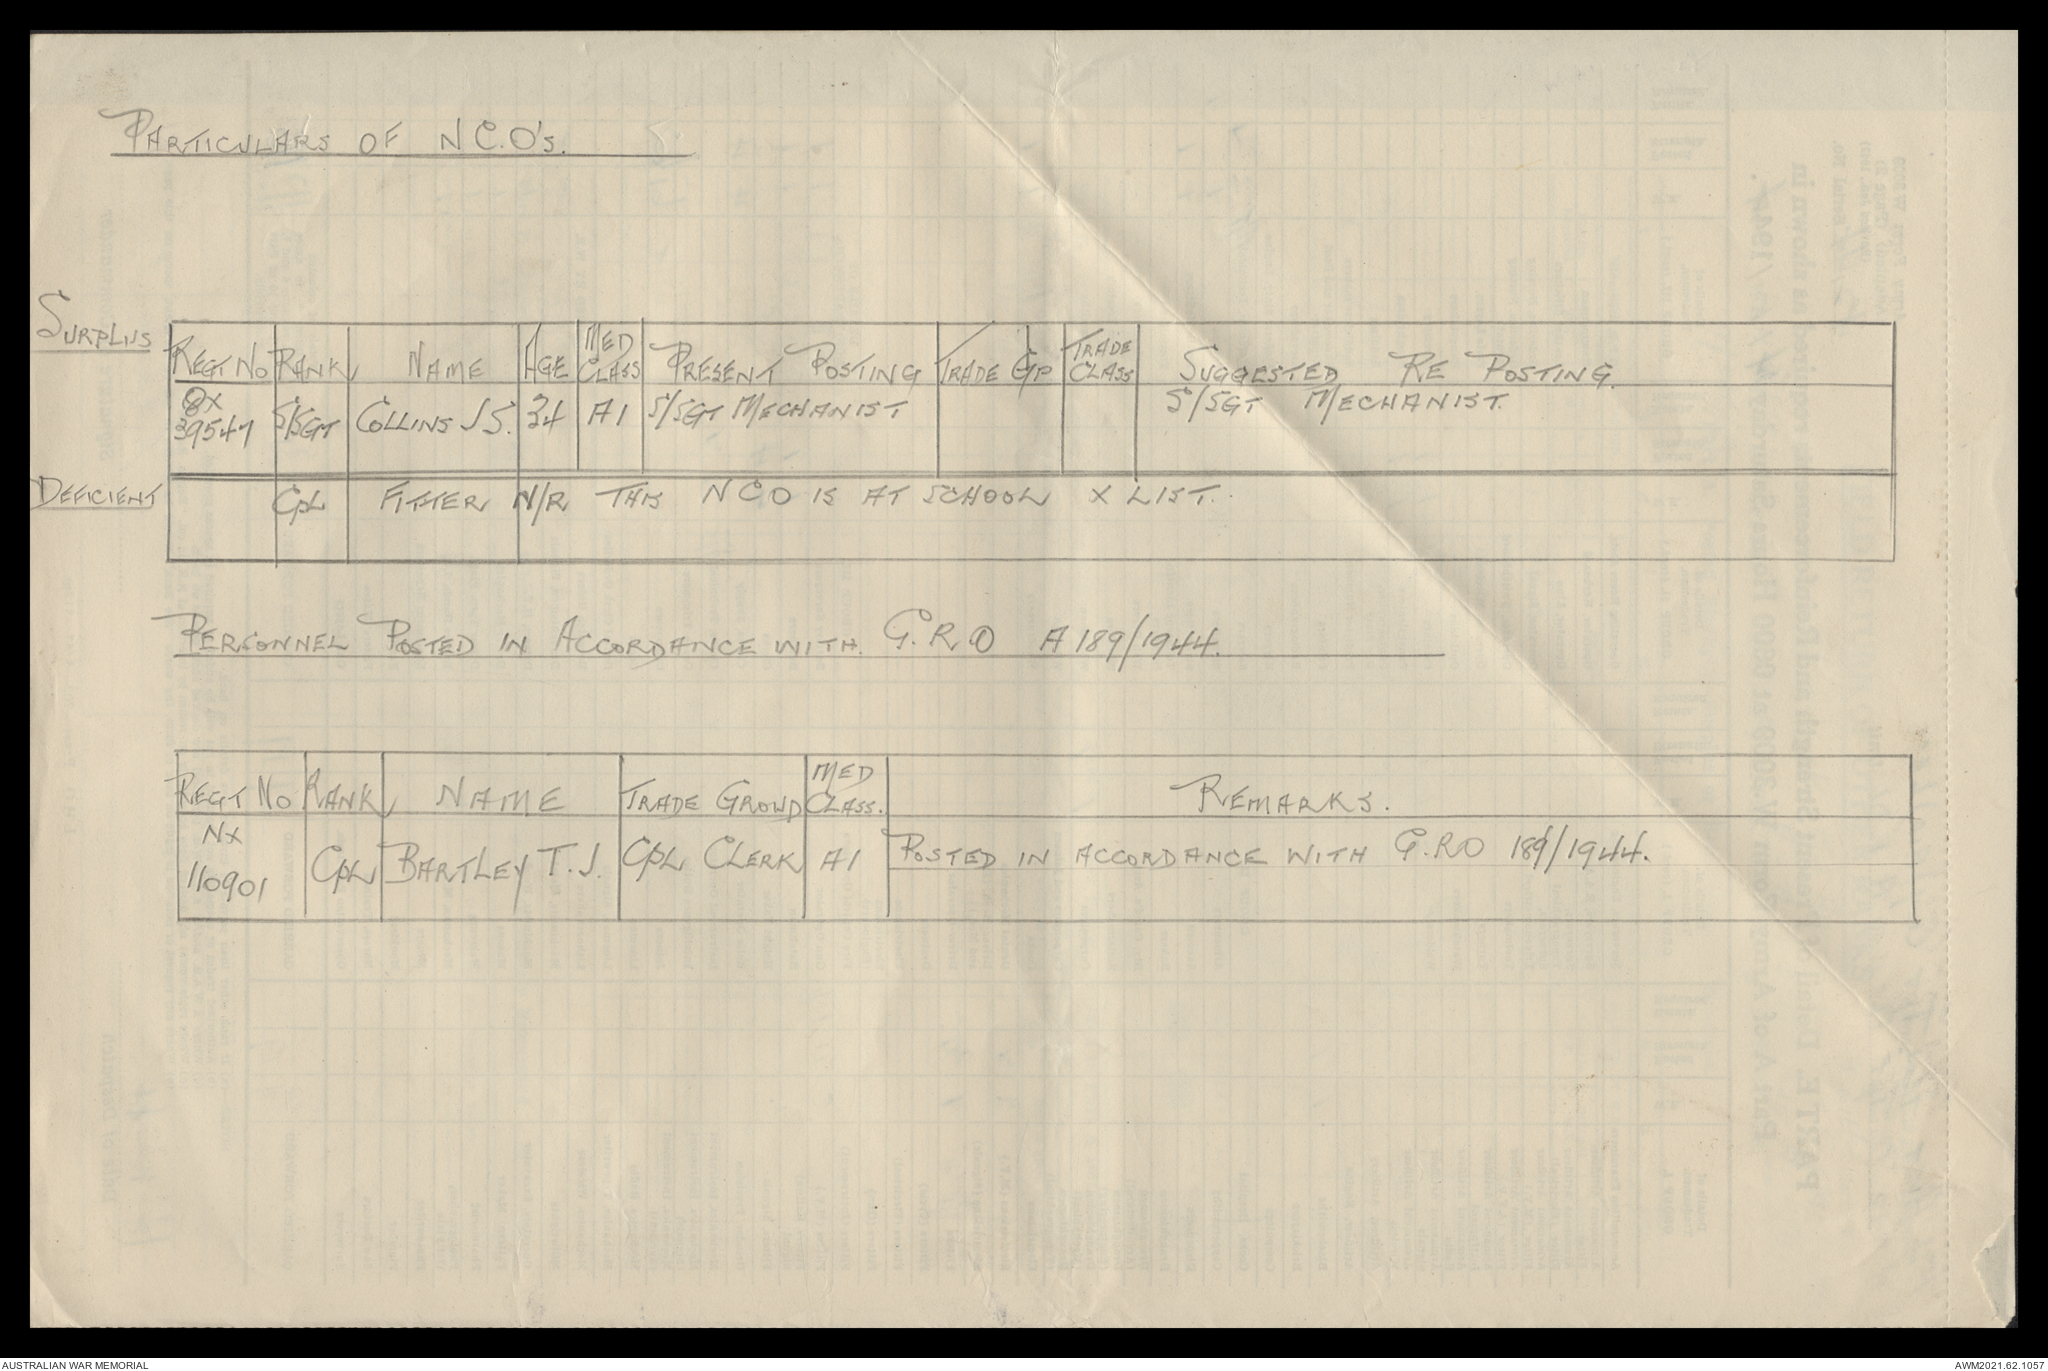 PARTICULARS OF N.C.O's.
SURPLUS
REGT NO RANK NAME AGE MED CLASS PRESENT POSTING TRADE GP TRADE CLASS SUGGESTED RE POSTING.
QX 39547 S/SGT COLLINS J S. 34 A1 S/SGT MECHANIST S/SGT MECHANIST.
DEFICIENT CPL FITTER N/R THIS NCO IS AT SCHOOL X LIST.
PERSONNEL POSTED IN ACCORDANCE WITH G.R.O A 189/1944.
REGT NO RANK NAME TRADE GROUP MED CLASS. REMARKS.
NX 110901 CPL BARTLEY T.J. CPL CLERK A1 POSTED IN ACCORDANCE WITH G.RO 189/1944.
AUSTRALIAN WAR MEMORIAL
AWM2021.62.1057